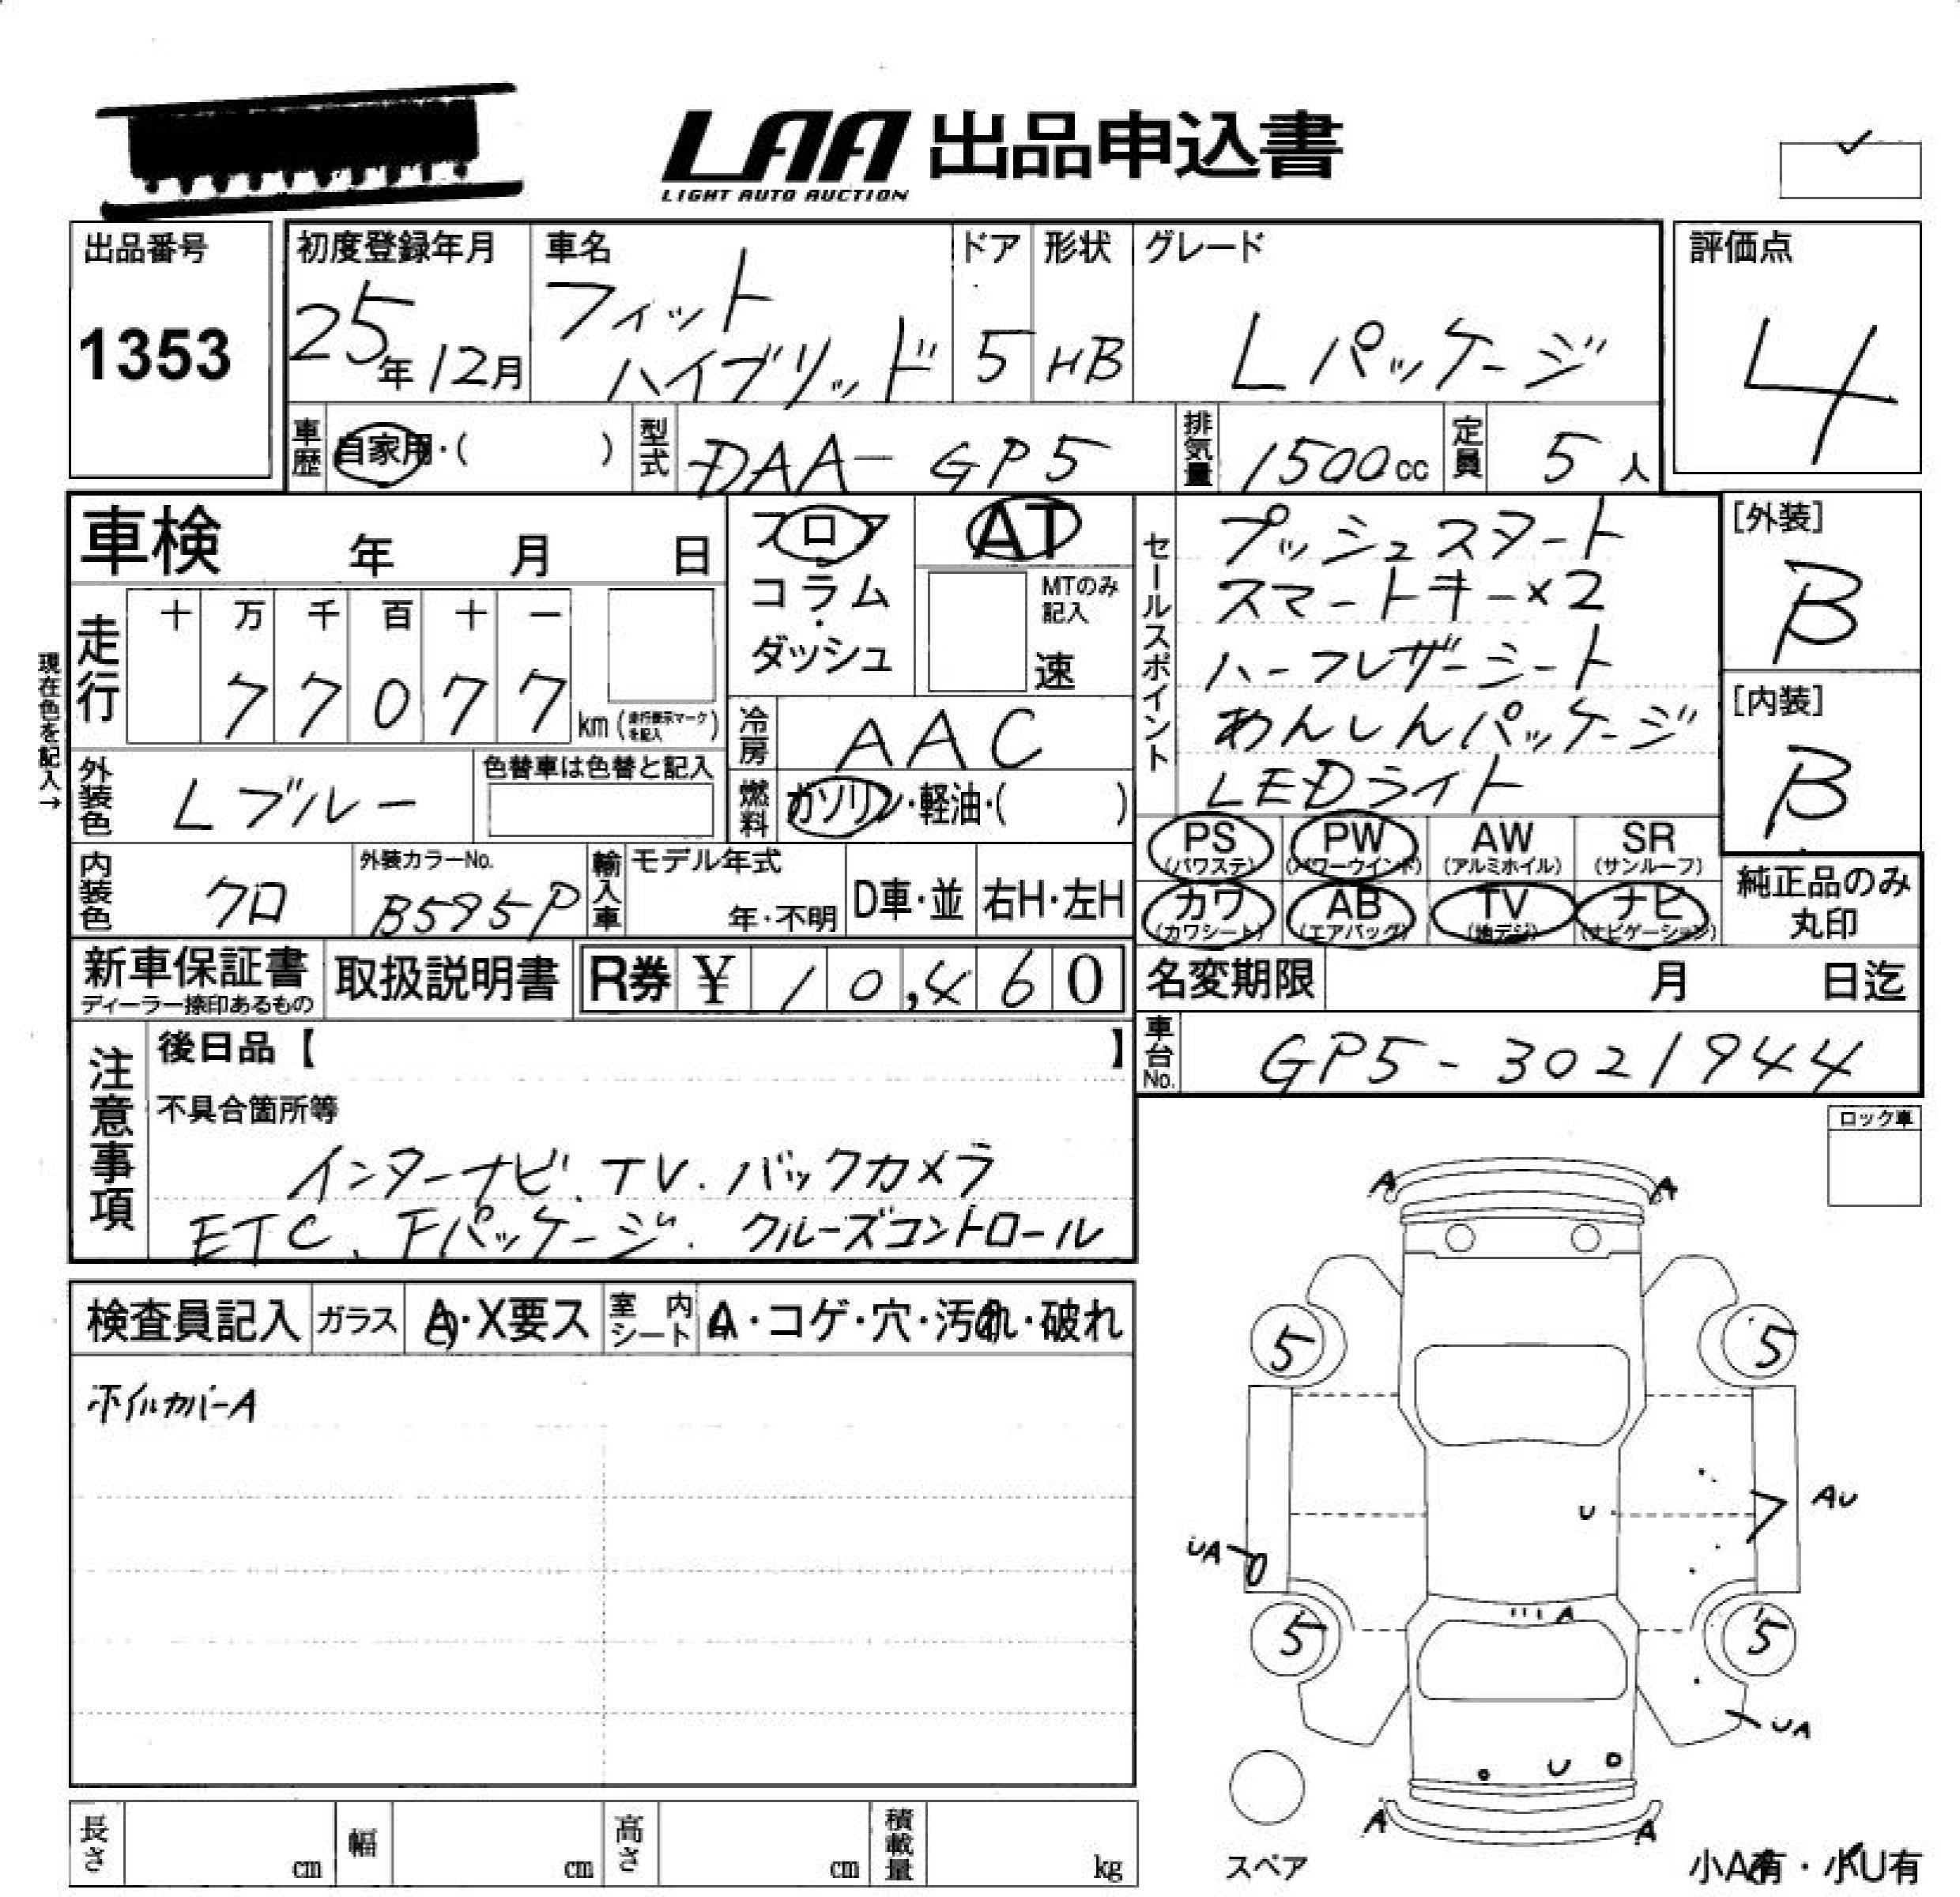 LAA 出品申込書
LIGHT AUTO AUCTION
出品番号
1353
初度登録年月
25年12月
車名
フィット
ハイブリッド
ドア
5
形状
HB
グレード
Lパッケージ
評価点
4
車歴
自家用・( )
型式
DAA-GP5
排気量
1500cc
定員
5人
車検 年 月 日
現在色を記入→
走行
十 万 千 百 十 一
77077 km (走行表示マークを記入)
フロア
コラム
・
ダッシュ
AT
MTのみ
記入
速
冷房
AAC
燃料
ガソリン・軽油・( )
外装色
Lブルー
色替車は色替と記入
内装色
クロ
外装カラーNo.
B595P
輸入車
モデル年式
年・不明
D車・並
右H・左H
セールスポイント
プッシュスタート
スマートキー×2
ハーフレザーシート
あんしんパッケージ
LEDライト
[外装]
B
[内装]
B
PS (パワステ) PW (パワーウインド) AW (アルミホイル) SR (サンルーフ)
カワ (カワシート) AB (エアバッグ) TV (地デジ) ナビ (ナビゲーション)
純正品のみ
丸印
新車保証書
ディーラー捺印あるもの
取扱説明書
R券 ¥ 10,460
名変期限 月 日迄
車台No.
GP5-3021944
注意事項
後日品【 】
不具合箇所等
インターナビ、TV.バックカメラ
ETC、Fパッケージ. クルーズコントロール
ロック車
検査員記入 ガラス A・X要ス 室内シート A・コゲ・穴・汚れ・破れ
ホイルカバーA
A A
5 5
U AU
UA
A
5 5
UA
U
A A
スペア
小A有・小U有
長さ cm 幅 cm 高さ cm 積載量 kg